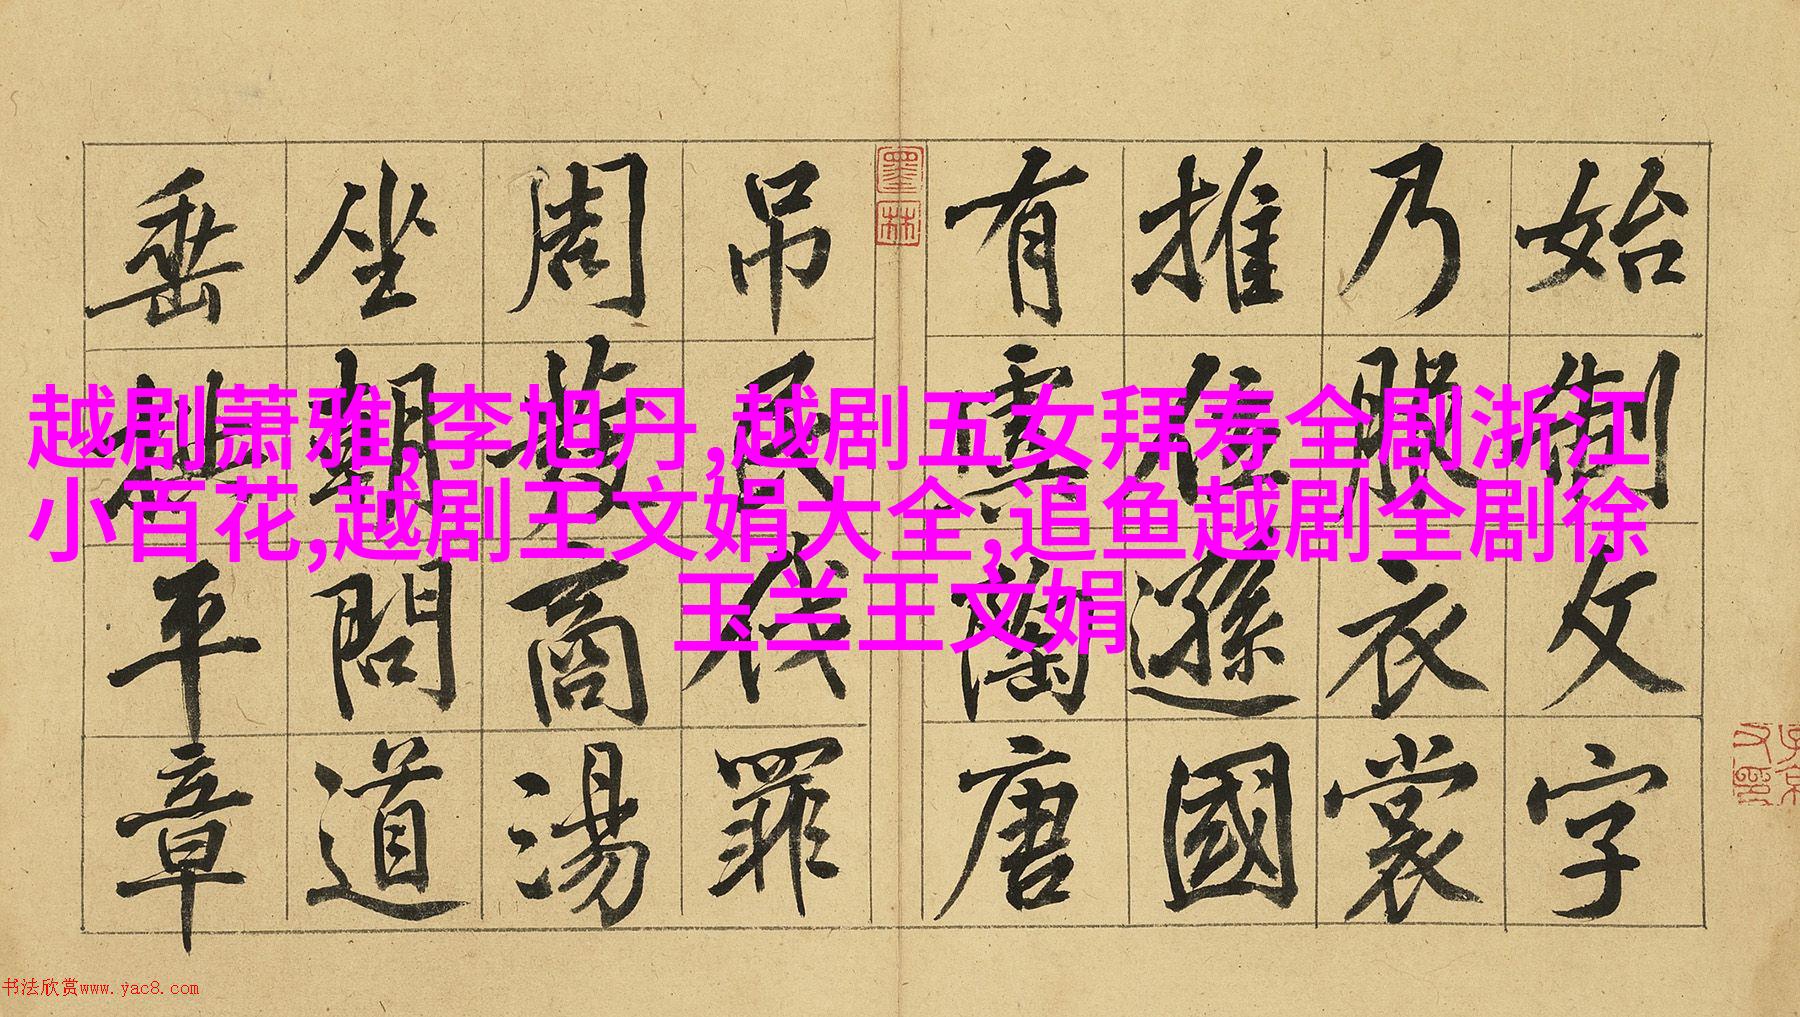 越剧萧雅,李旭丹,越剧五女拜寿全剧浙江
小百花,越剧王文娟大全,追鱼越剧全剧徐
玉兰王文娟
始制文字
乃服衣裳
推位遜國
有虞陶唐
吊民伐罪
周發商湯
坐朝問道
垂拱平章
墨林
书法欣赏www.yac8.com